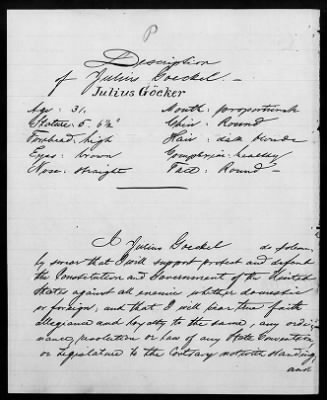 P
Description
of Julius Goeckel –
Julius Göcker
Age: 31. Mouth: proportionate
Stature: 5. 6½" Chin: Round
Forehead: high Hair: dark blonde
Eyes: brown Complexion: healthy
Nose: straight Face: Round –
I Julius Goeckel do solem-
ly swear that I will support protect and defend
the Constitution and Government of the United
States against all enemies whether domestic
or foreign, and that I will bear true faith
allegiance and loyalty to the same, any ordi-
nance, resolution or law of any State Convention,
or Legislature to the Contrary notwithstanding,
and